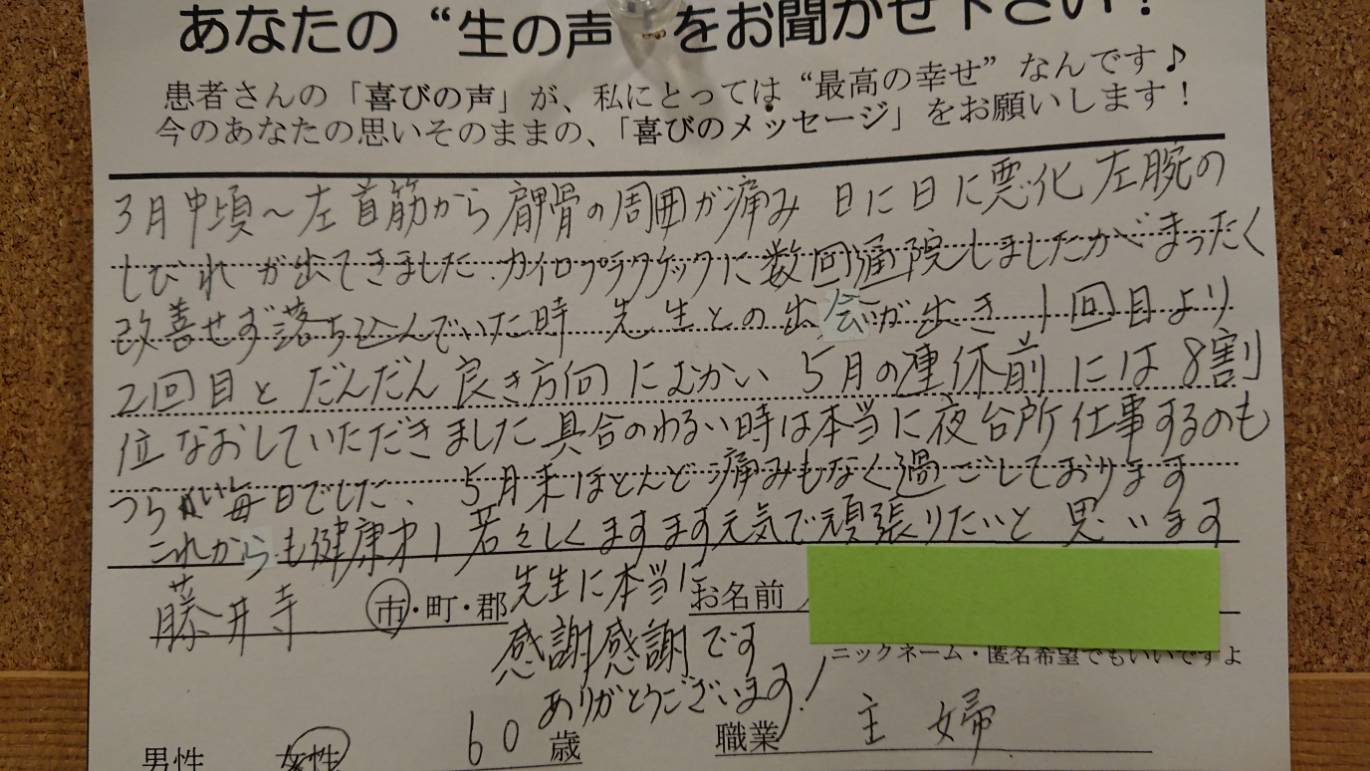 あなたの“生の声”をお聞かせ下さい！
患者さんの「喜びの声」が、私にとっては“最高の幸せ”なんです♪
今のあなたの思いそのままの、「喜びのメッセージ」をお願いします！
3月中頃～左首筋から肩甲骨の周囲が痛み 日に日に悪化 左腕の
しびれが出てきました、カイロプラクテックに数回通院しましたがまったく
改善せず落ち込んでいた時 先生との出会が出き 1回目より
2回目と だんだん良き方向にむかい 5月の連休前には8割
位なおしていただきました 具合のわるい時は本当に夜台所仕事するのも
つらい毎日でした、5月末ほとんど痛みもなく過ごしております
これからも健康第1 若々しくますます元気で頑張りたいと思います
藤井寺 市・町・郡 先生に本当に お名前
感謝感謝です
ニックネーム・匿名希望でもいいですよ
ありがとうございます！
男性 女性 60歳 職業 主婦